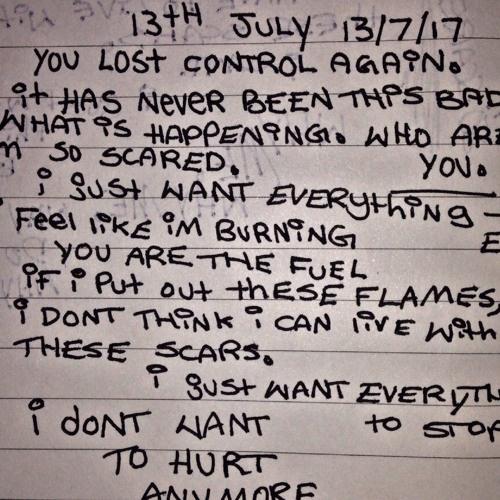 13TH JULY 13/7/17
YOU LOST CONTROL AGAiN.
it HAS NeveR BEEN THiS BAD
WHAT iS HAPPENiNG. WHO ARE
m SO SCARED. YOU.
i JUST WANT EVERYthiNG -
FeeL LiKE iM BURNiNG E
YOU ARE THE FUEL
iF i PUt OUt tHESE FLAMES,
i DONT THiNK i CAN LiVE With
THESE SCARS.
i JUST WANT EVERYTH
i dONT WANT to STOP
TO HURT
ANYMORE